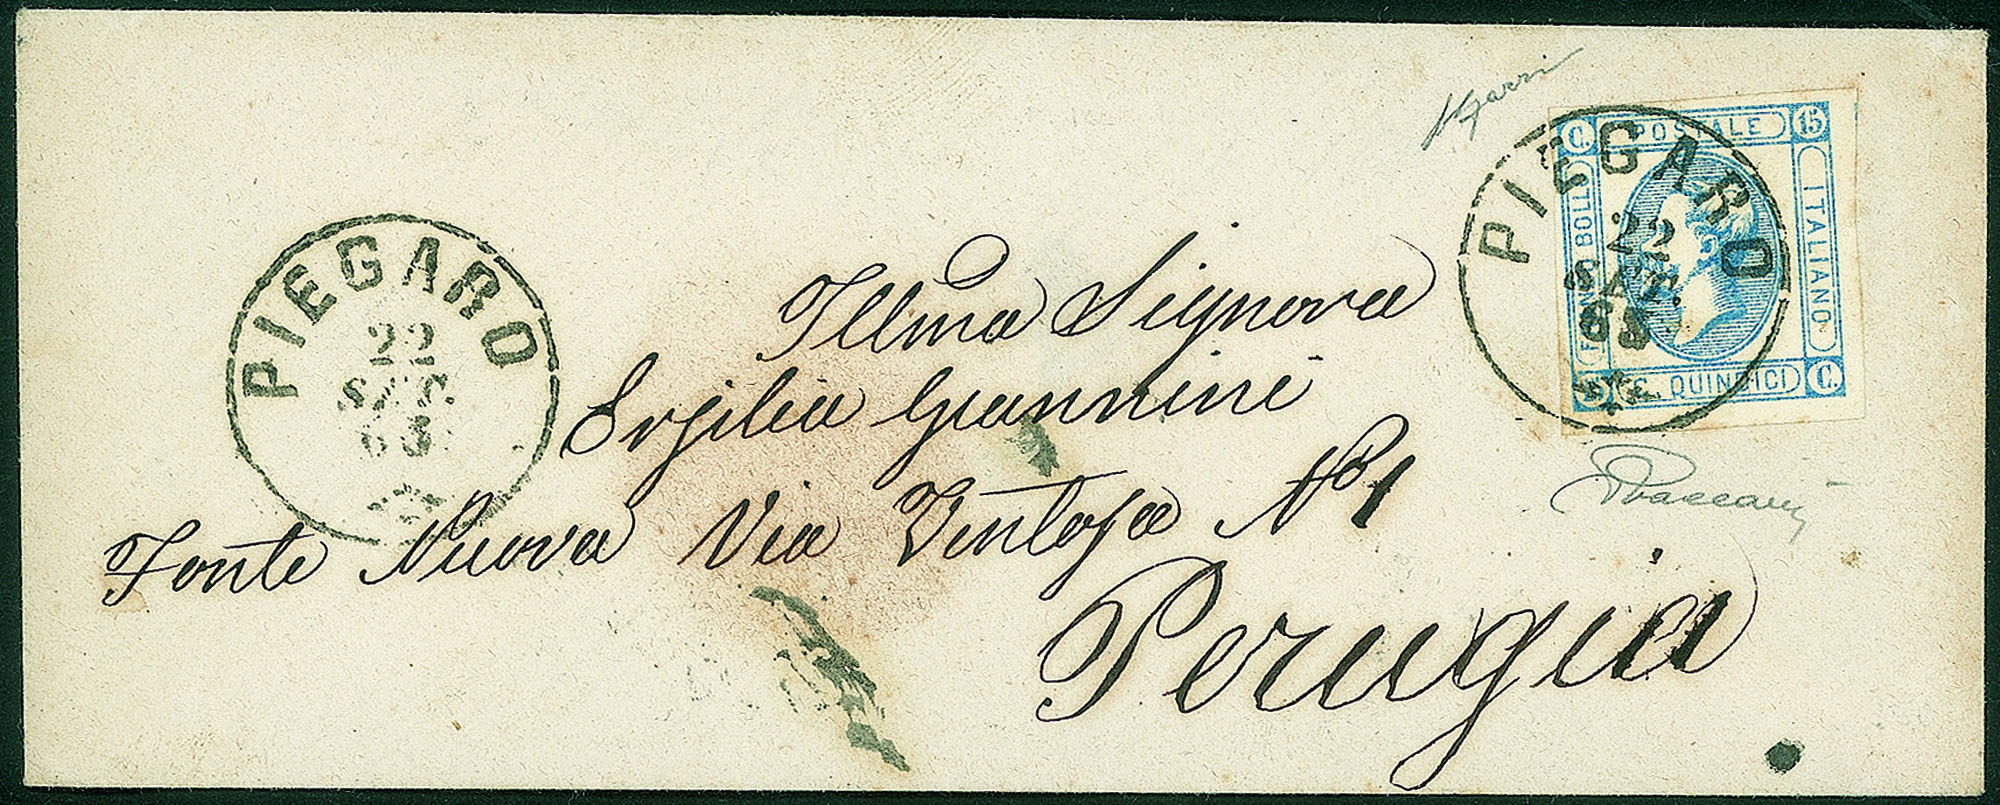 C. POSTALE 15
FRANCO BOLLO
ITALIANO
15 C. QUINDICI C.
PIEGARO
22
SET.
63
PIEGARO
22
SET.
63
Illma Signora
Ersilia Giannini
Fonte Nuova Via Ventosa No 1
Perugia